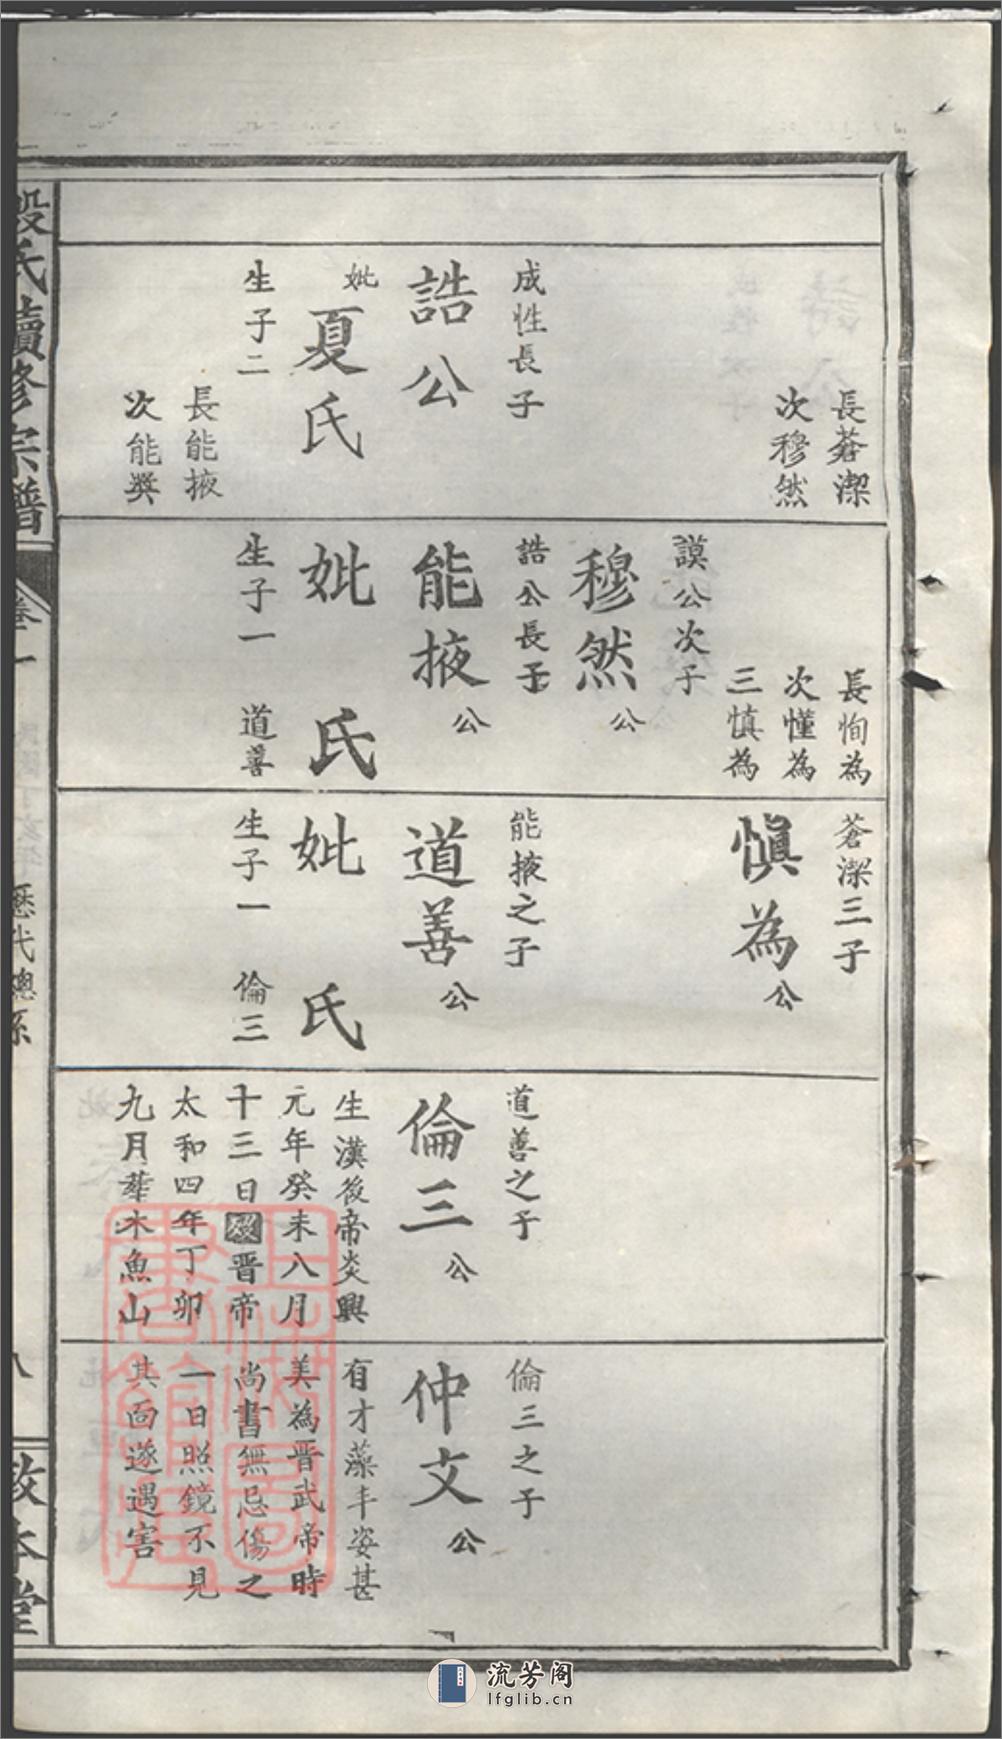 長蒼潔
次穆然
成性長子
誥公
妣夏氏
生子二
長能掖
次能獎
長恂為
次懂為
三慎為
謨公次子
穆然公
誥公長子
能掖公
妣氏
生子一 道善
蒼潔三子
慎為公
能掖之子
道善公
妣氏
生子一 倫三
道善之子
倫三公
生漢後帝炎興
元年癸未八月
十三日歿晋帝
太和四年丁卯
九月葬木魚山
倫三之子
仲文公
有才藻丰姿甚
美為晋武帝時
尚書無忌傷之
一日照鏡不見
其面遂遇害
殷氏續修宗譜
卷一
歷代總系
八
敦本堂
流芳阁
lfglib.cn